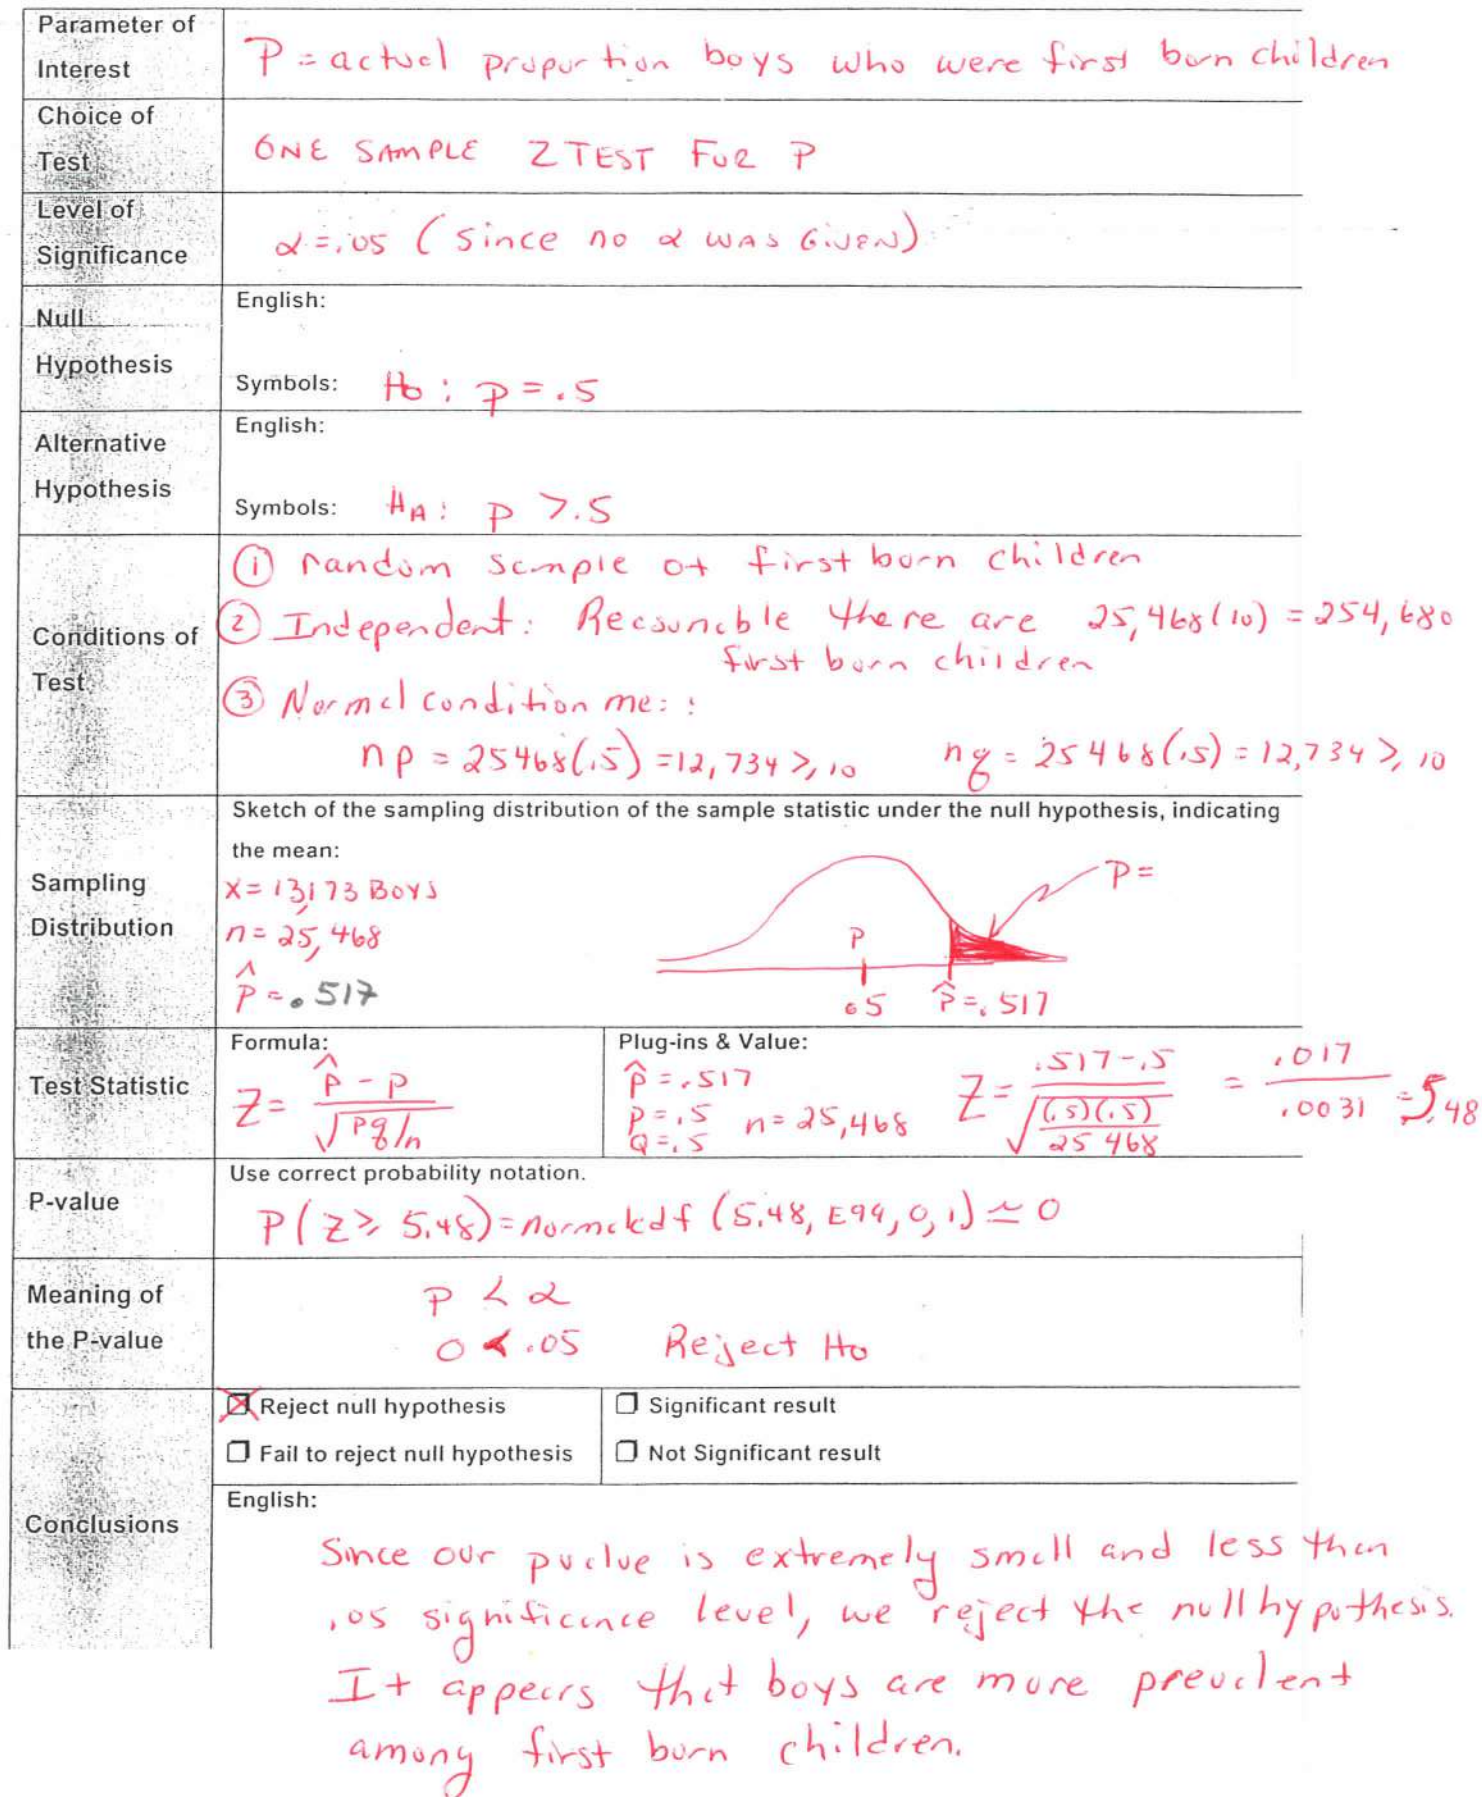 Parameter of
Interest
P = actual proportion boys who were first born children
Choice of
Test
ONE SAMPLE Z TEST FOR P
Level of
Significance
α = .05 (since no α was GIVEN)
Null
Hypothesis
English:
Symbols: Ho : p = .5
Alternative
Hypothesis
English:
Symbols: HA : p > .5
Conditions of
Test
① random sample of first born children
② Independent: Reasonable there are 25,468(10) = 254,680
first born children
③ Normal condition met:
np = 25468(.5) = 12,734 ≥ 10 nq = 25468(.5) = 12,734 ≥ 10
Sampling
Distribution
Sketch of the sampling distribution of the sample statistic under the null hypothesis, indicating
the mean:
x = 13,173 BOYS
n = 25,468
p̂ = .517
P =
P
.5 p̂ = .517
Test Statistic
Formula:
Z = p̂ - p / √pq/n
Plug-ins & Value:
p̂ = .517
p = .5
Q = .5 n = 25,468
Z = .517 - .5 / √(.5)(.5)/25468 = .017 / .0031 = 5.48
P-value
Use correct probability notation.
P(Z ≥ 5.48) = normalcdf (5.48, E99, 0, 1) ≃ 0
Meaning of
the P-value
P < α
0 < .05 Reject Ho
Conclusions
☒ Reject null hypothesis
☐ Fail to reject null hypothesis
☐ Significant result
☐ Not Significant result
English:
Since our pvalue is extremely small and less than
.05 significance level, we reject the null hypothesis.
It appears that boys are more prevalent
among first born children.